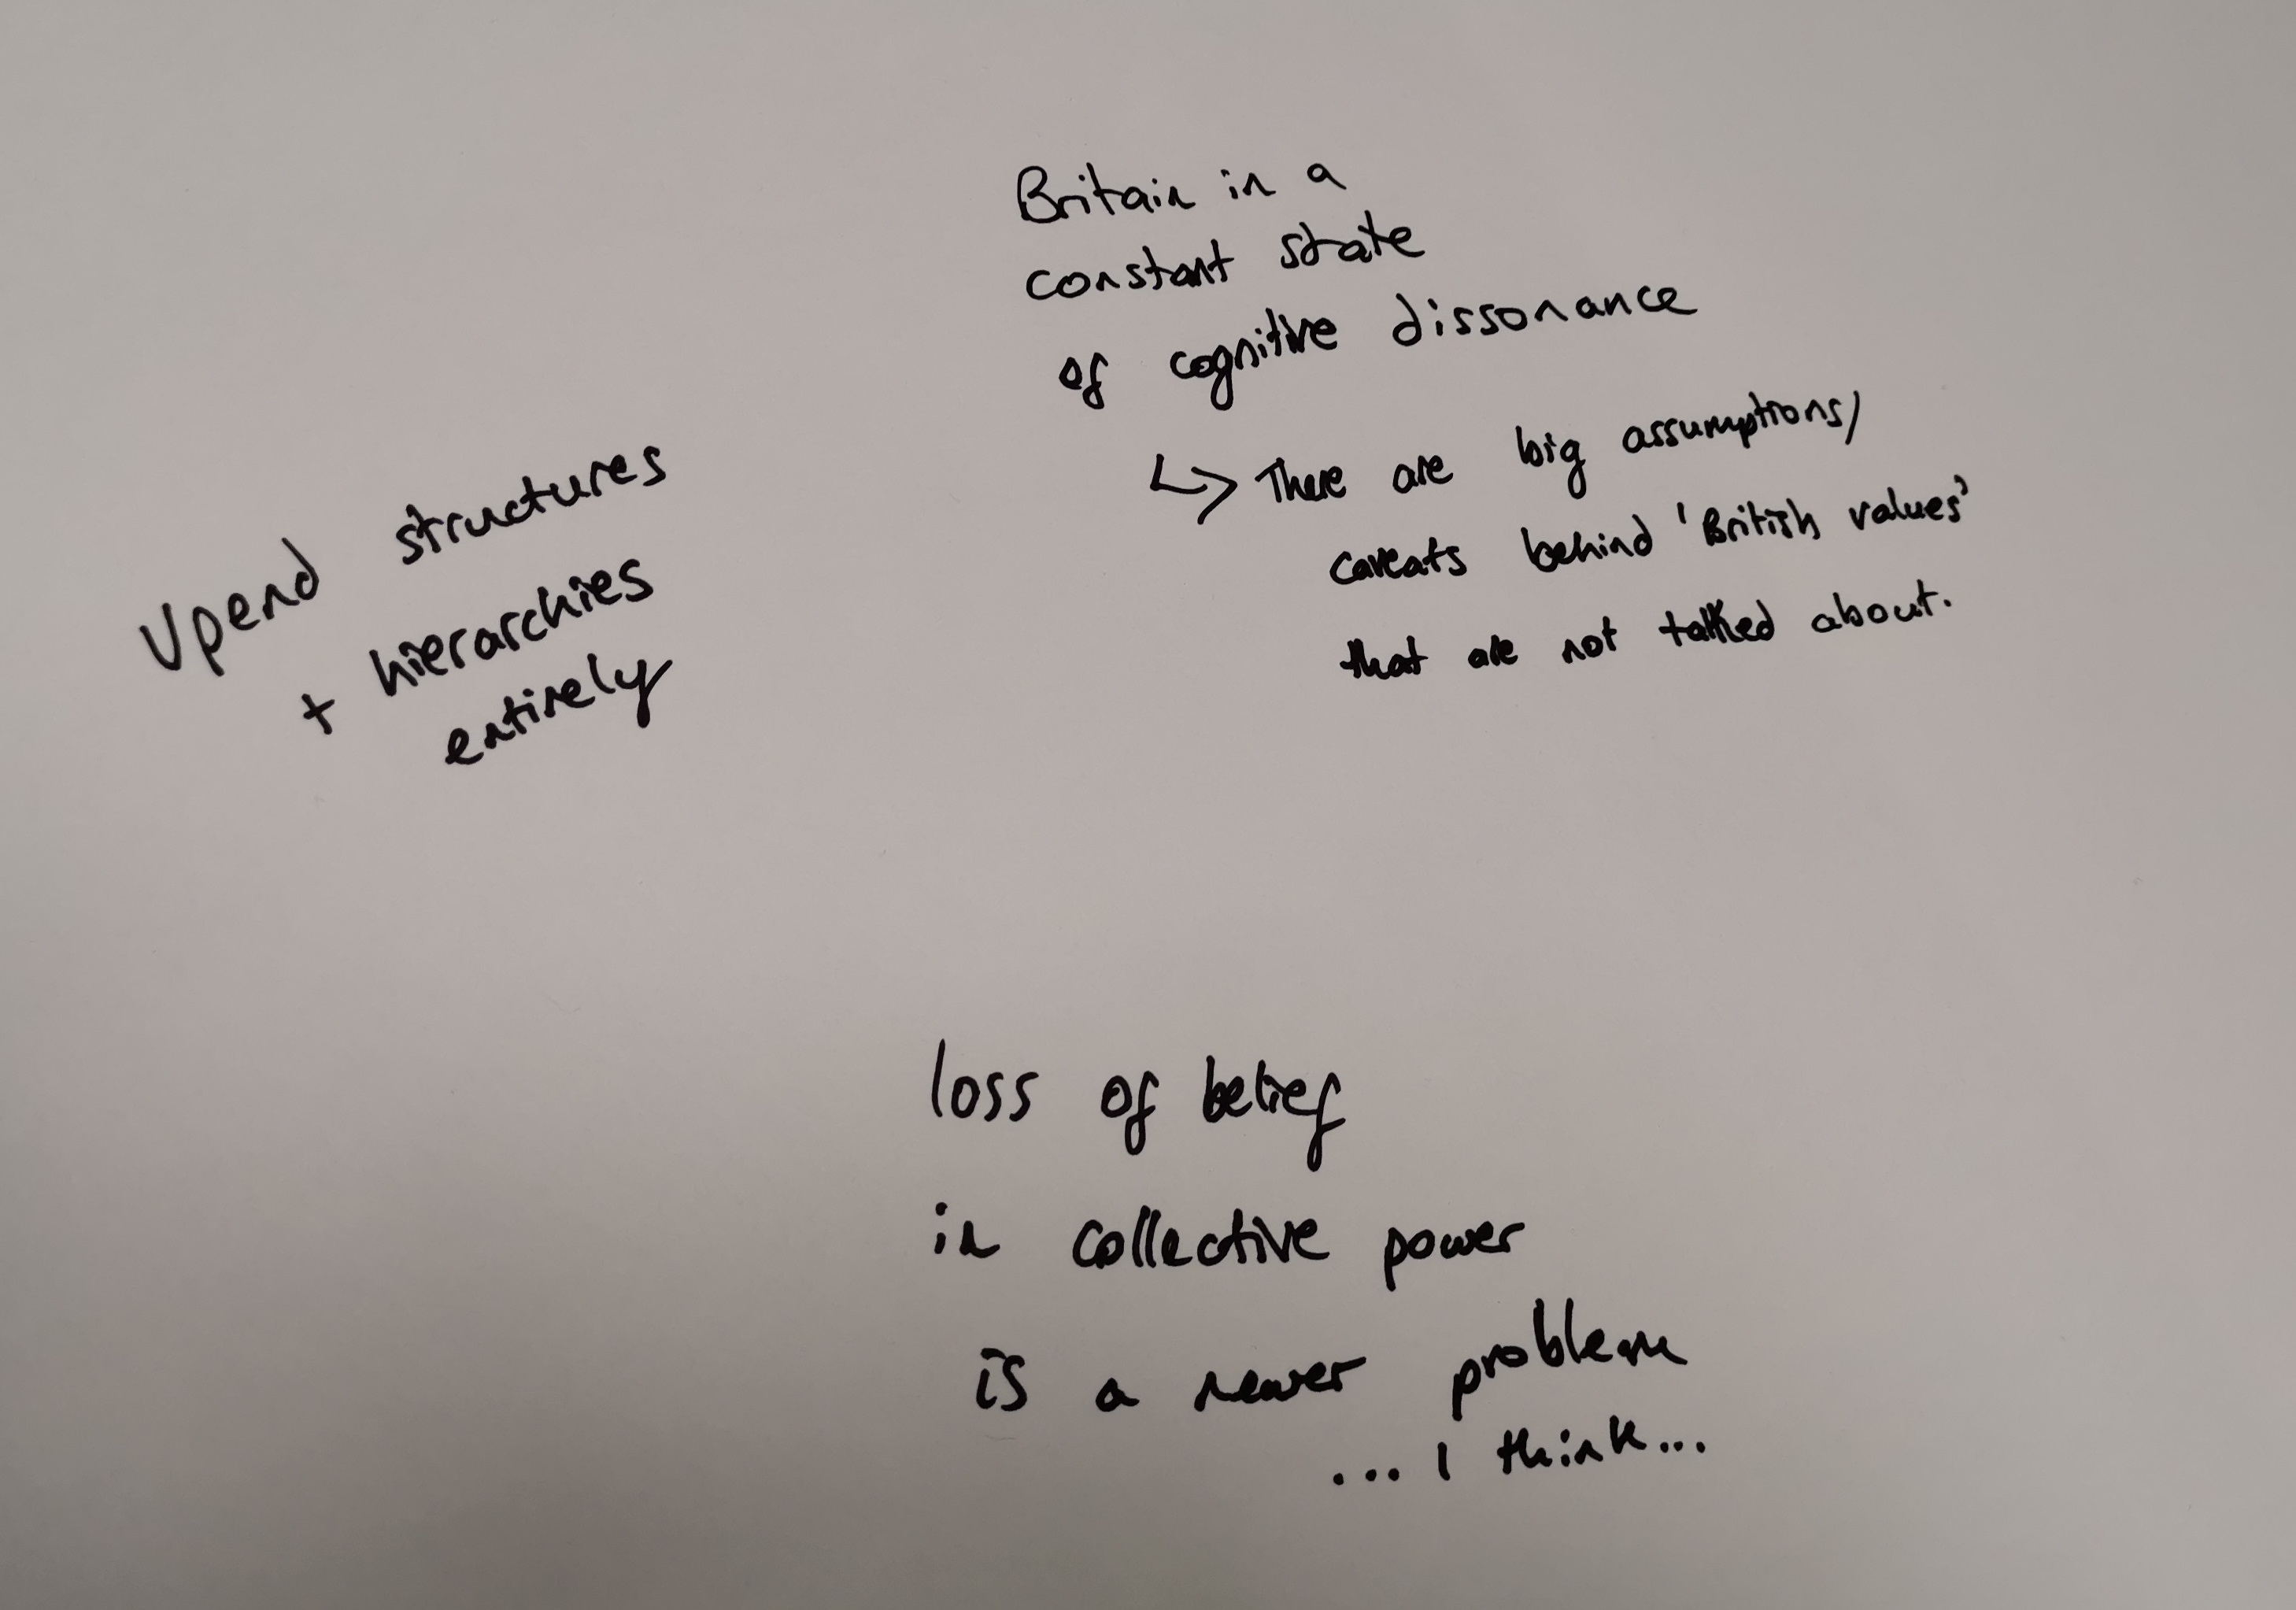 Britain in a
constant state
of cognitive dissonance
↳ There are big assumptions/
caveats behind 'British values'
that are not talked about.
Upend structures
+ hierarchies
entirely
loss of belief
in collective power
is a newer problem
... I think...